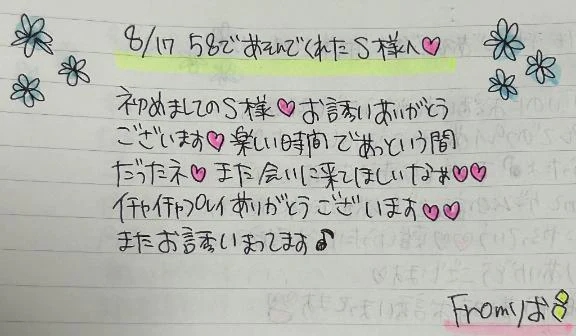 8/17 58であそんでくれたS様へ♡
初めましてのS様♡お誘いありがとう
ございます♡楽しい時間であっという間
だったネ♡また会いに来てほしいなぁ♡♡
イチャイチャプレイありがとうございます♡♡
またお誘いまってます♪
Fromりお